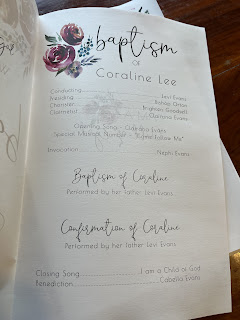 baptism
of
Coraline Lee
Conducting Levi Evans
Presiding Bishop Orton
Chorister
Opening Song - Oakland Evans
Special Musical Number - "Come Follow Me"
Invocation Nephi Evans
Baptism of Coraline
Performed by her father Levi Evans
Confirmation of Coraline
Performed by her father Levi Evans
Closing Song I am a Child of God
Benediction Evans